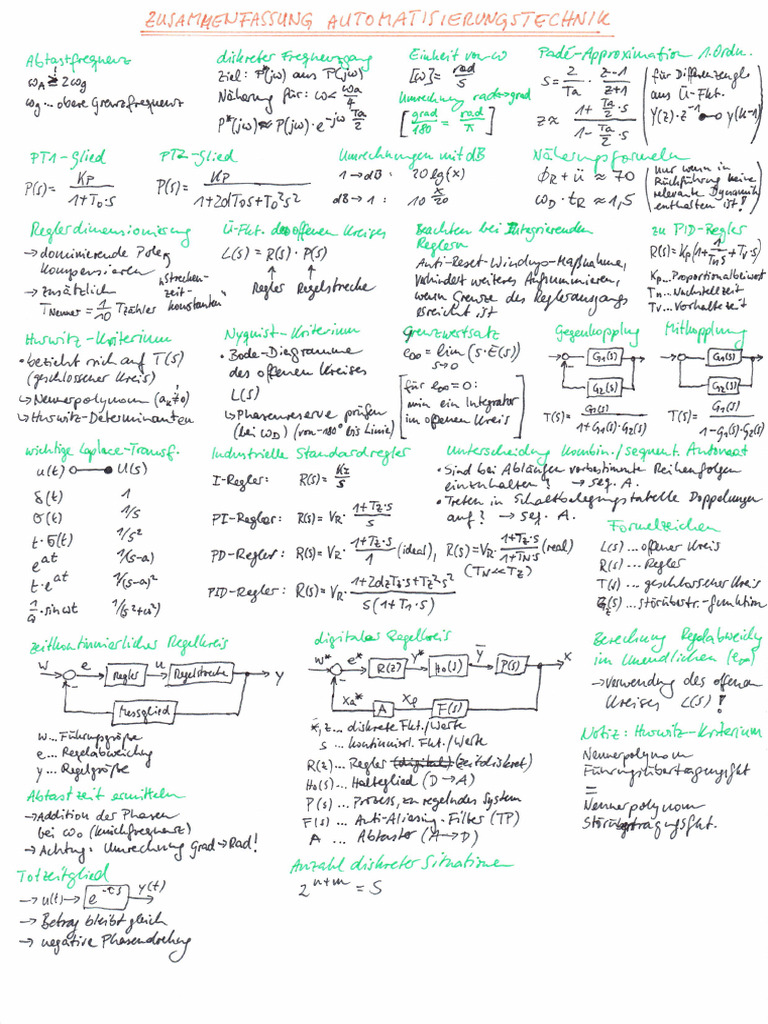 ZUSAMMENFASSUNG AUTOMATISIERUNGSTECHNIK
Abtastfrequenz
ω_A ≥ 2ω_g
ω_g ... obere Grenzfrequenz
diskreter Frequenzgang
Ziel: P*(jω) aus P(jω)
Näherung für: ω < ω_a/4
P*(jω) ≈ P(jω) · e^(-jω Ta/2)
Einheit von ω
[ω] = rad/s
Umrechnung rad→grad
[grad/180 = rad/π]
Padé-Approximation 1. Ordn.
s = 2/Ta · z-1/z+1
z ≈ (1 + Ta/2 · s)/(1 - Ta/2 · s)
(für Differenzengl.
aus Ü-Fkt.
Y(z) · z^-1 ●—○ y(k-1))
PT1-Glied
P(s) = K_P/(1+T_0·s)
PT2-Glied
P(s) = K_P/(1+2dT_0s+T_0²s²)
Umrechnungen mit dB
1 → dB: 20 lg(x)
dB → 1: 10^(x/20)
Näherungsformeln
Φ_R + ü ≈ 70
ω_D · t_R ≈ 1,5
(nur wenn in
Rückführung keine
relevante Dynamik
enthalten ist!)
Reglerdimensionierung
→ dominierende Pole
kompensieren
→ zusätzlich
T_Nenner = 1/10 T_Zähler
"Strecken-
zeit-
konstanten"
Ü-Fkt. des offenen Kreises
L(s) = R(s) · P(s)
Regler Regelstrecke
Beachten bei Integrierenden
Reglern
Anti-Reset-Windup-Maßnahme,
verhindert weiteres Aufsummieren,
wenn Grenze des Reglerausgangs
erreicht ist
zu PID-Regler
R(s) = K_P(1 + 1/(T_N s) + T_V·s)
K_P ... Proportionalbeiwert
T_N ... Nachstellzeit
T_V ... Vorhaltezeit
Hurwitz-Kriterium
• bezieht sich auf T(s)
(geschlossener Kreis)
↳ Nennerpolynom (a_x ≠ 0)
↳ Hurwitz-Determinanten
Nyquist-Kriterium
• Bode-Diagramme
des offenen Kreises
L(s)
↳ Phasenreserve prüfen
(bei ω_D) (von -180° bis Linie)
Grenzwertsatz
e_∞ = lim (s·E(s))
s→0
[für e_∞ = 0:
min ein Integrator
im offenen Kreis]
Gegenkopplung
G_1(s)
G_2(s)
T(s) = G_1(s)/(1+G_1(s)·G_2(s))
Mitkopplung
G_1(s)
G_2(s)
T(s) = G_1(s)/(1-G_1(s)·G_2(s))
wichtige Laplace-Transf.
u(t) ○—● U(s)
δ(t) 1
σ(t) 1/s
t·σ(t) 1/s²
e^at 1/(s-a)
t·e^at 1/(s-a)²
Industrielle Standardregler
I-Regler: R(s) =
PI-Regler: R(s) = V_R · (1+T_Z·s)/s
PD-Regler: R(s) = V_R · (1+T_Z·s)/1 (ideal), R(s) = V_R · (1+T_Z·s)/(1+T_N·s) (real)
(T_N << T_Z)
PID-Regler: R(s) = V_R · (1+2dT_Z·s+T_Z²s²)/(s(1+T_1·s))
Unterscheidung Kombin./sequent. Automat
• Sind bei Abläufen vorbestimmte Reihenfolgen
einzuhalten? → seq. A.
• Treten in Schaltbelegungstabelle Doppelungen
auf? → seq. A.
Formelzeichen
L(s) ... offener Kreis
R(s) ... Regler
T(s) ... geschlossener Kreis
(s) ... störübertr.-funktion
zeitkontinuierlicher Regelkreis
w e Regler u Regelstrecke y
Messglied
w ... Führungsgröße
e ... Regelabweichung
y ... Regelgröße
digitaler Regelkreis
w* e* R(z) y* H_0(s) y̅ P(s) x
x_a* A x_e F(s)
*, z ... diskrete Fkt./Werte
s ... kontinuierl. Fkt./Werte
R(z) ... Regler (digital) (zeitdiskret)
H_0(s) ... Halteglied (D→A)
P(s) ... Prozess, zu regelndes System
F(s) ... Anti-Aliasing-Filter (TP)
A ... Abtaster (A→D)
Berechnung Regelabweichg
im Unendlichen (e_∞)
→ Verwendung des offenen
Kreises L(s)!
Notiz: Hurwitz-Kriterium
Nennerpolynom
Führungsübertragungsfkt
=
Nennerpolynom
Störübertragungsfkt.
Abtastzeit ermitteln
→ Addition der Phasen
bei ω_0 (Knickfrequenz)
→ Achtung: Umrechnung Grad→Rad!
Anzahl diskreter Situationen
2^(n+m) = S
Totzeitglied
→ u(t) → e^(-τs) y(t)
→ Betrag bleibt gleich
→ negative Phasendrehung